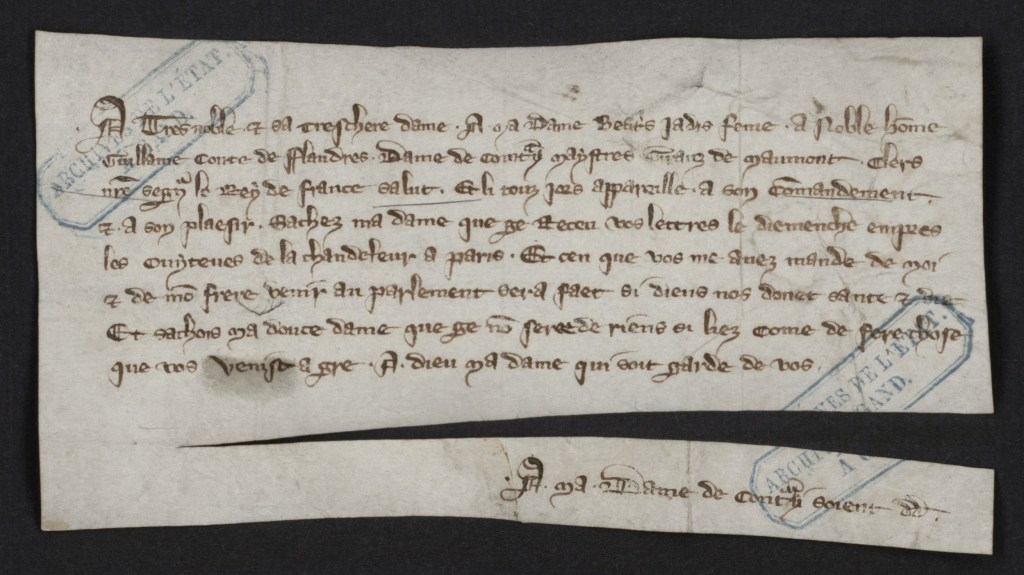 A Tres noble . & sa treschere dame . A Ma Dame Beatris Jadis feme . a Noble home
Guillame Conte de fflandres . Dame de Cou͛t^a^y Maystres de Maumont . Clers
n͛re segn͛ le Rey de france salut . Et li touz jors appareille . a son Comandement .
& . a son plaesir . Sachez ma dame que ge Receu vos lettres le diemenche enpres
les Ouyteves de la chandeleur a paris . Et cen que vos me avez mande de moi
& de mō frere venir au parlement sera faet si dieus nos donet sante & vie
Et sachois Ma douce dame que ge nō seree de riens si liez Come de fere chose
que vos venist a gre . A . dieu Ma dame qui soit garde de vos .
. A . Ma . Dame de Cout^a^y soient
ARCHIVES DE L'ÉTAT .
ARCHIVES DE L'ÉTAT .
A GAND .